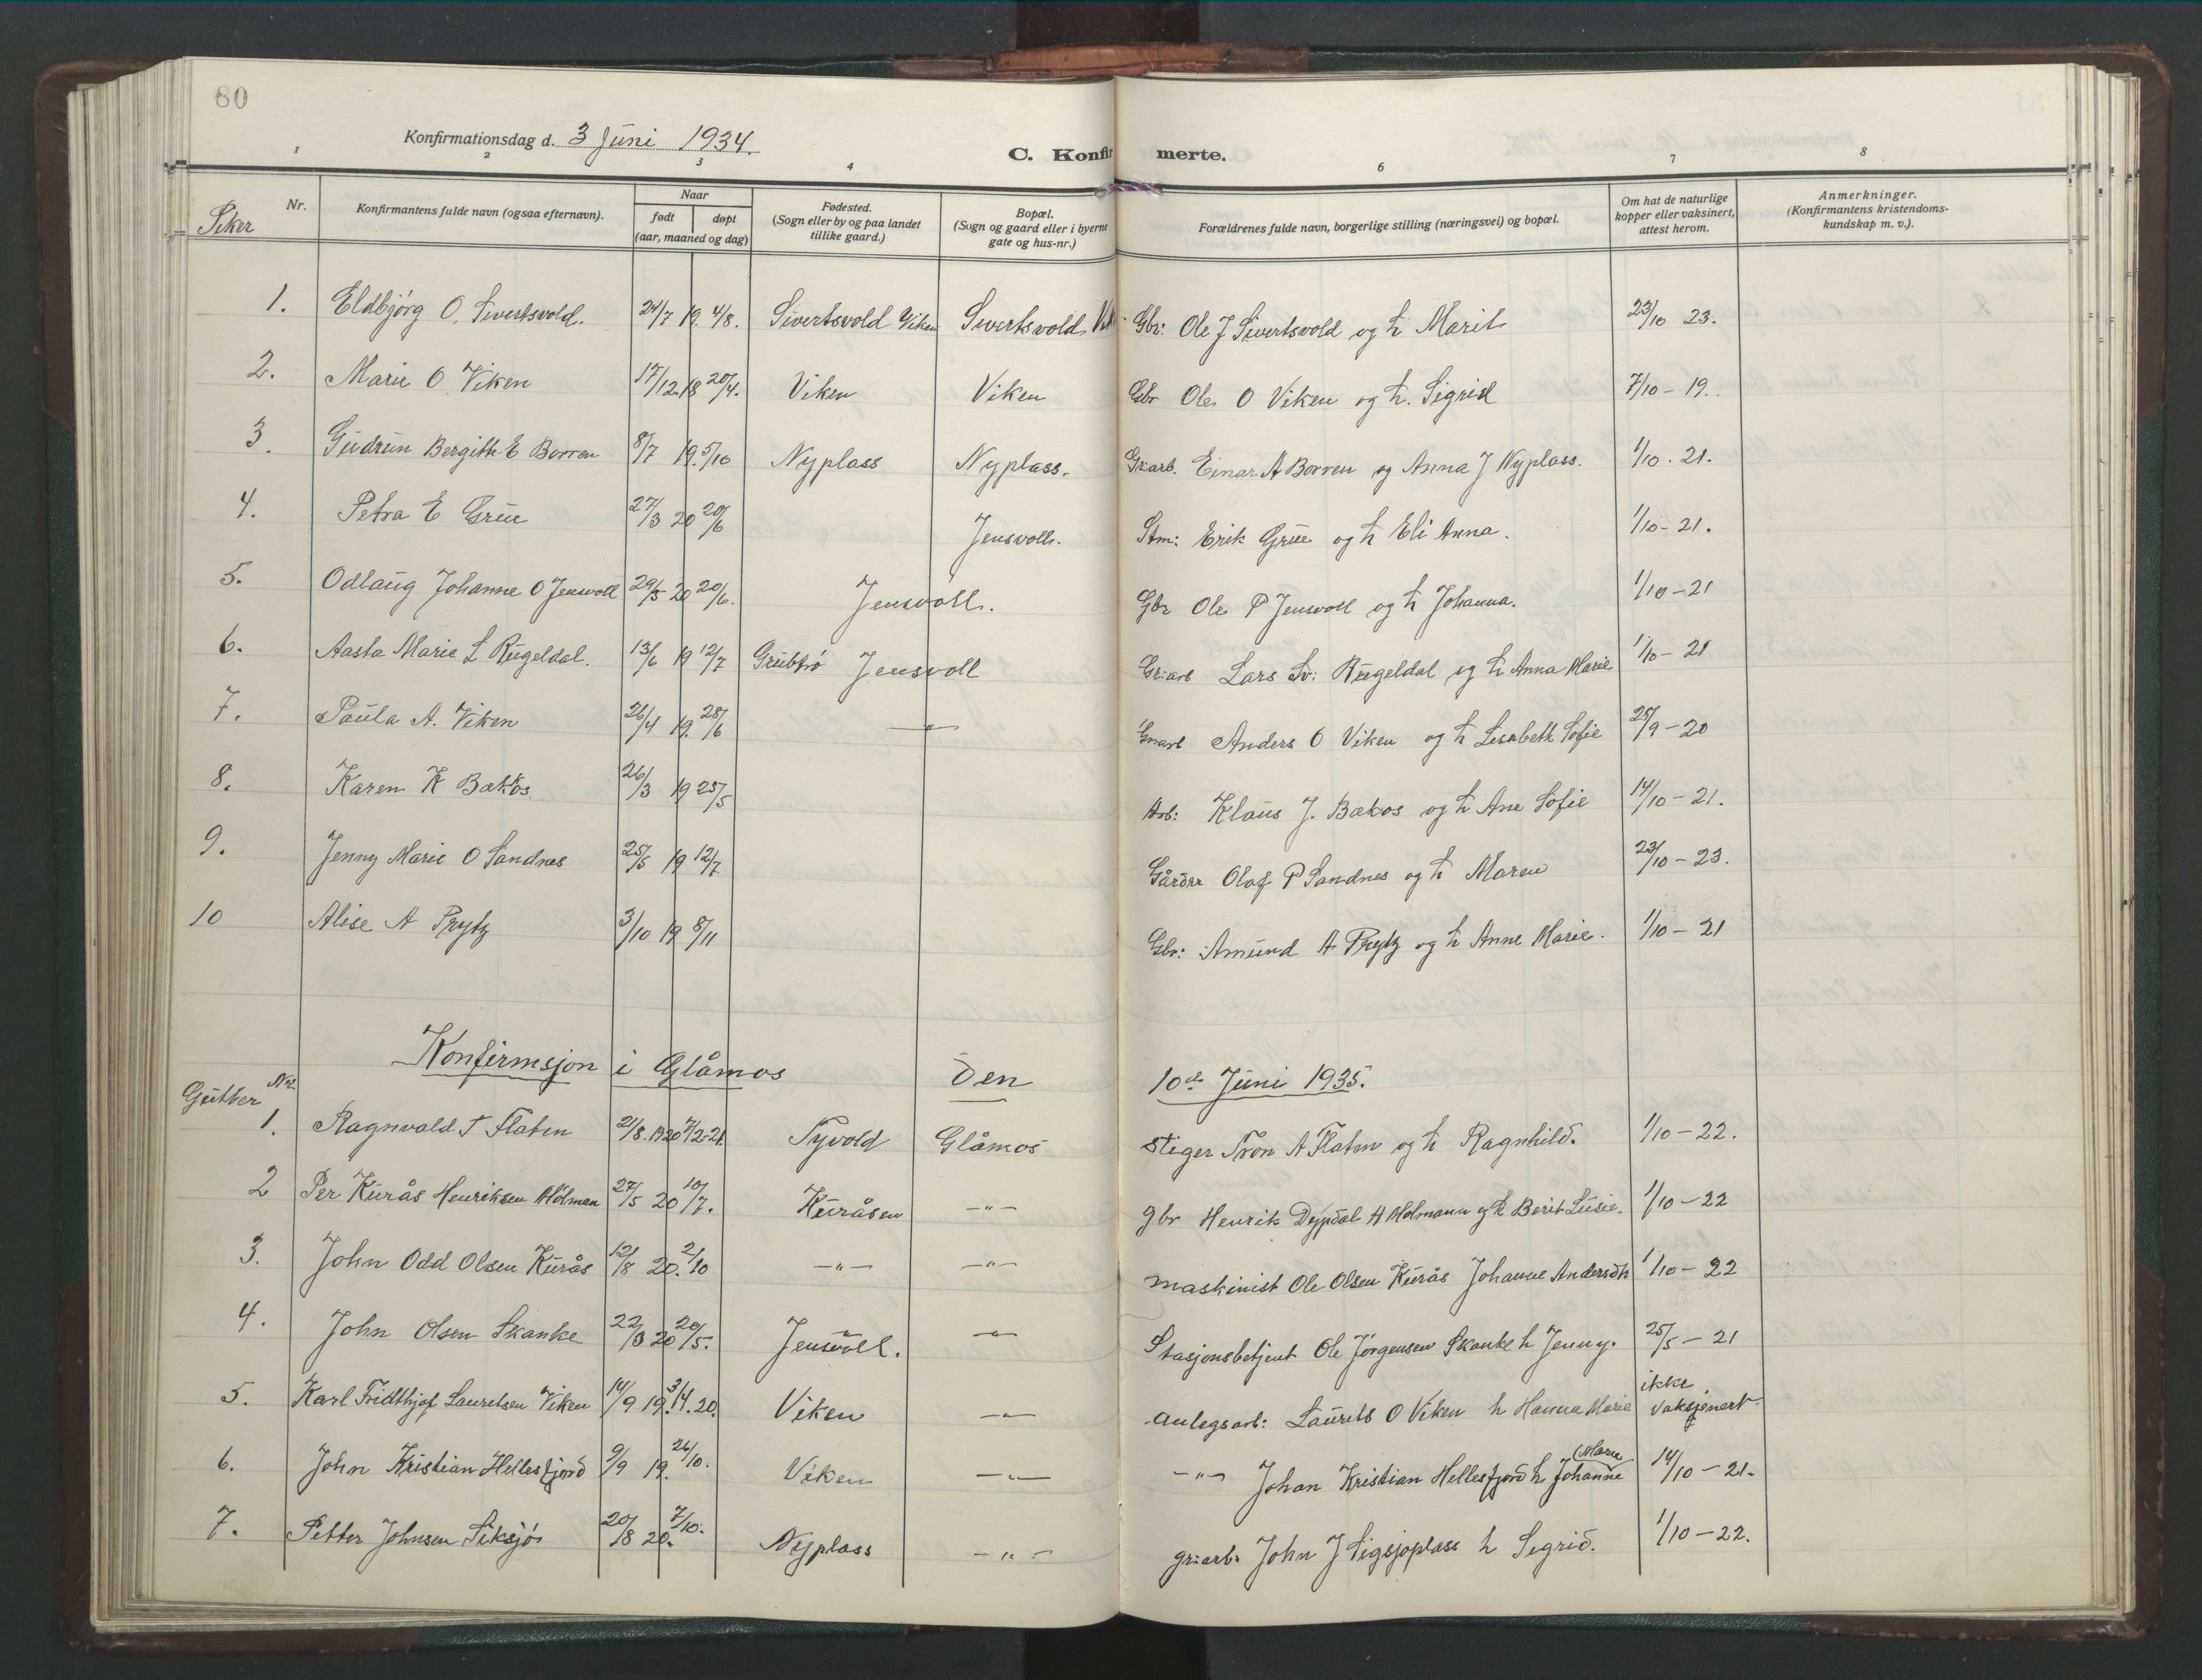 80
Konfirmationsdag d. 3 Juni 1934.
C. Konfirmerte.
1 2 3 4 6 7 8
Piker
Nr.
Konfirmantens fulde navn (ogsaa efternavn).
Naar
født døpt
(aar, maaned og dag)
Fødested.
(Sogn eller by og paa landet
tillike gaard.)
Bopæl.
(Sogn og gaard eller i byerne
gate og hus-nr.)
Forældrenes fulde navn, borgerlige stilling (næringsvei) og bopæl.
Om hat de naturlige
kopper eller vaksinert,
attest herom.
Anmerkninger.
(Konfirmantens kristendoms-
kundskap m. v.).
1. Eldbjörg O. Sivertsvold. 24/7 19. 4/8. Sivertsvold Viken Sivertsvold Gbr: Ole J Sivertsvold og h Marit 23/10 23.
2. Marie O Viken 17/12 18 20/4. Viken Viken Gbr Ole O Viken og h. Sigrid 7/10 - 19.
3. Gudrun Bergith E Borren 8/7 19. 5/10 Nyplass Nyplass. Gr:arb. Einar A Borren og Anna J Nyplass. 1/10 . 21.
4. Petra E Grue 27/3 20 20/6 Jensvoll. Stm: Erik Grue og h Eli Anna. 1/10 - 21.
5. Odlaug Johanne O Jensvoll 29/5 20 20/6. Jensvoll. Gbr Ole P Jensvoll og h Johanna. 1/10 - 21
6. Aasta Marie L Rugeldal. 13/6 19 12/7 Grubbrö Jensvoll Gr:arb Lars Sv: Rugeldal og h Anna Marie 1/10 - 21
7. Paula A. Viken 26/4 19. 28/6 —"— Gr:arb Anders O Viken og h Lisabeth Sofie 25/9 - 20
8. Karen K Bakos 26/3 19 25/5 Arb: Klaus J. Bakos og h Ane Sofie 14/10 - 21.
9. Jenny Marie O Sandnes 25/5 19 12/7. Gårdbr Olaf P Sandnes og h Maren 23/10 - 23.
10 Alise A Prytz 3/10 19 8/11 Gbr: Amund A Prytz og h Anne Marie. 1/10 - 21
Konfirmsjon i Glåmos den 10de Juni 1935.
Gutter Nr.
1. Ragnvald T Flaten 21/8. 1920 7/2-21. Tyvold Glåmos Stiger Tron A Flaten og h Ragnhild. 1/10 - 22.
2 Per Kurås Henriksen Holman 27/5 20 10/7. Kuråsen -"- gbr Henrik Dypdal H Holmann og h Berit Lusie. 1/10 - 22
3. John Odd Olsen Kurås 12/8 20. 2/10 -"- -"- maskinist Ole Olsen Kurås Johanne Andersdtr 1/10 - 22
4. John Olsen Skanke 22/3 20 20/5. Jensvoll. -"- Stasjonsbetjent Ole Jörgensen Skanke h Jenny. 25/5 - 21
5. Karl Fridthjof Lauretsen Viken 14/9 19. 3/4. 20. Viken -"- anlegsarb: Laurets O Viken h Hanna Marie ikke vaksjenert.
6. John Kristian Hellesfjord 9/9 19. 26/10. Viken -"- -"- Johan Kristian Hellesfjord h Johanne (Marie 14/10 - 21.
7. Petter Johnsen Siksjö 20/8 20. 7/10. Nyplass -"- gr:arb. John J Sigsjoplass h Segrid. 1/10 - 22.